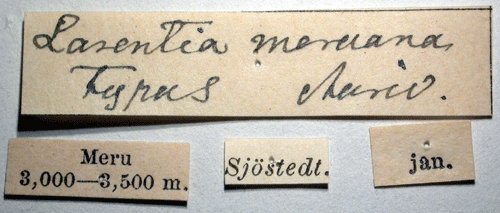 Larentia meruana
Typus Auriv.
Meru
3,000—3,500 m.
Sjöstedt.
jan.